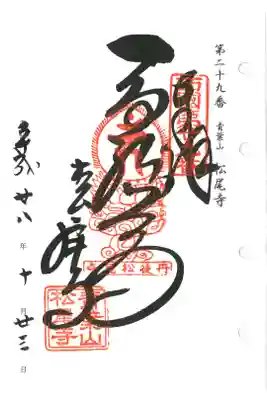 第二十九番 青葉山 松尾寺
奉拝
馬頭尊
松尾寺
平成廿八年十月廿三日
丹後松尾寺
青葉山松尾寺